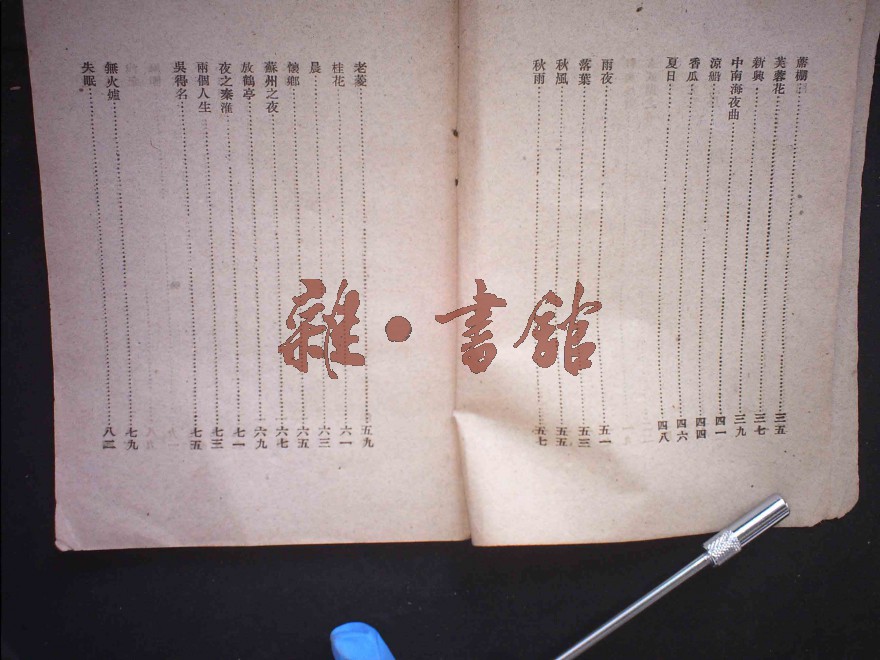 蓆棚……三五
芙蓉花……三七
新興……三九
中南海夜曲……四一
涼……四四
香瓜……四六
夏日……四八
雨夜……五一
落葉……五三
秋風……五五
秋雨……五七
老菱……五九
桂花……六一
晨……六三
懷鄉……六五
蘇州之夜……六七
放鶴亭……六九
夜之秦淮……七一
兩個人生……七三
吳得名……七五
無火爐……七九
失眠……八二
雜·書館